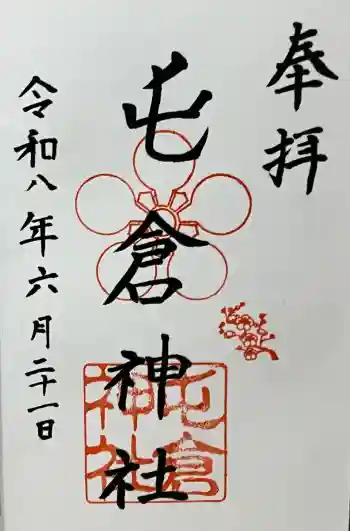 奉拝
屯倉神社
屯倉
神社
令和八年六月二十一日